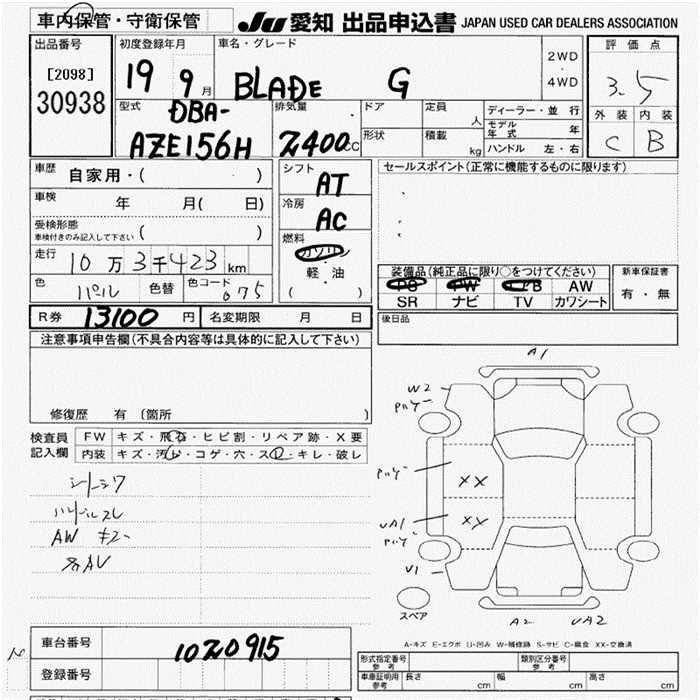 車内保管・守衛保管 JU 愛知 出品申込書 JAPAN USED CAR DEALERS ASSOCIATION
出品番号 初度登録年月 車名・グレード 評価点
[2098] 19 9月 BLADE G 2WD・4WD 3.5
30938
型式 排気量 ドア 定員 人 ディーラー・並行 外装 内装
DBA- モデル年式 年 C B
AZE156H 2400CC 形状 積載 kg ハンドル 左・右
車歴 自家用・( ) シフト セールスポイント(正常に機能するものに限ります)
AT
車検 年 月( 日) 冷房
AC
受検形態
車検付きのみ記入して下さい ( ) 燃料
走行 ガソリン
10万3千423km 軽・油 装備品(純正品に限り○をつけてください) 新車保証書
色 パール 色替 色コード 075 ( ) PS PW AB AW 有・無
SR ナビ TV カワシート
R券 13100円 名変期限 月 日 後日品
注意事項申告欄(不具合内容等は具体的に記入して下さい)
A1
W2
修復歴 有(箇所 )
検査員 FW キズ・飛石・ヒビ割・リペア跡・X要
記入欄 内装 キズ・汚れ・コゲ・穴・スレ・キレ・破レ
XX
シートシワ
ハンドルスレ
XY
UA1
AW キズ
U1
スペア
A2 UA2
車台番号 1020915
A-キズ E-エクボ U-凹み W-補修跡 S-サビ C-腐食 XX-交換済
登録番号
形式指定番号 参考 類別区分番号 参考
車庫証明用 参考 長さ cm 幅 cm 高さ cm